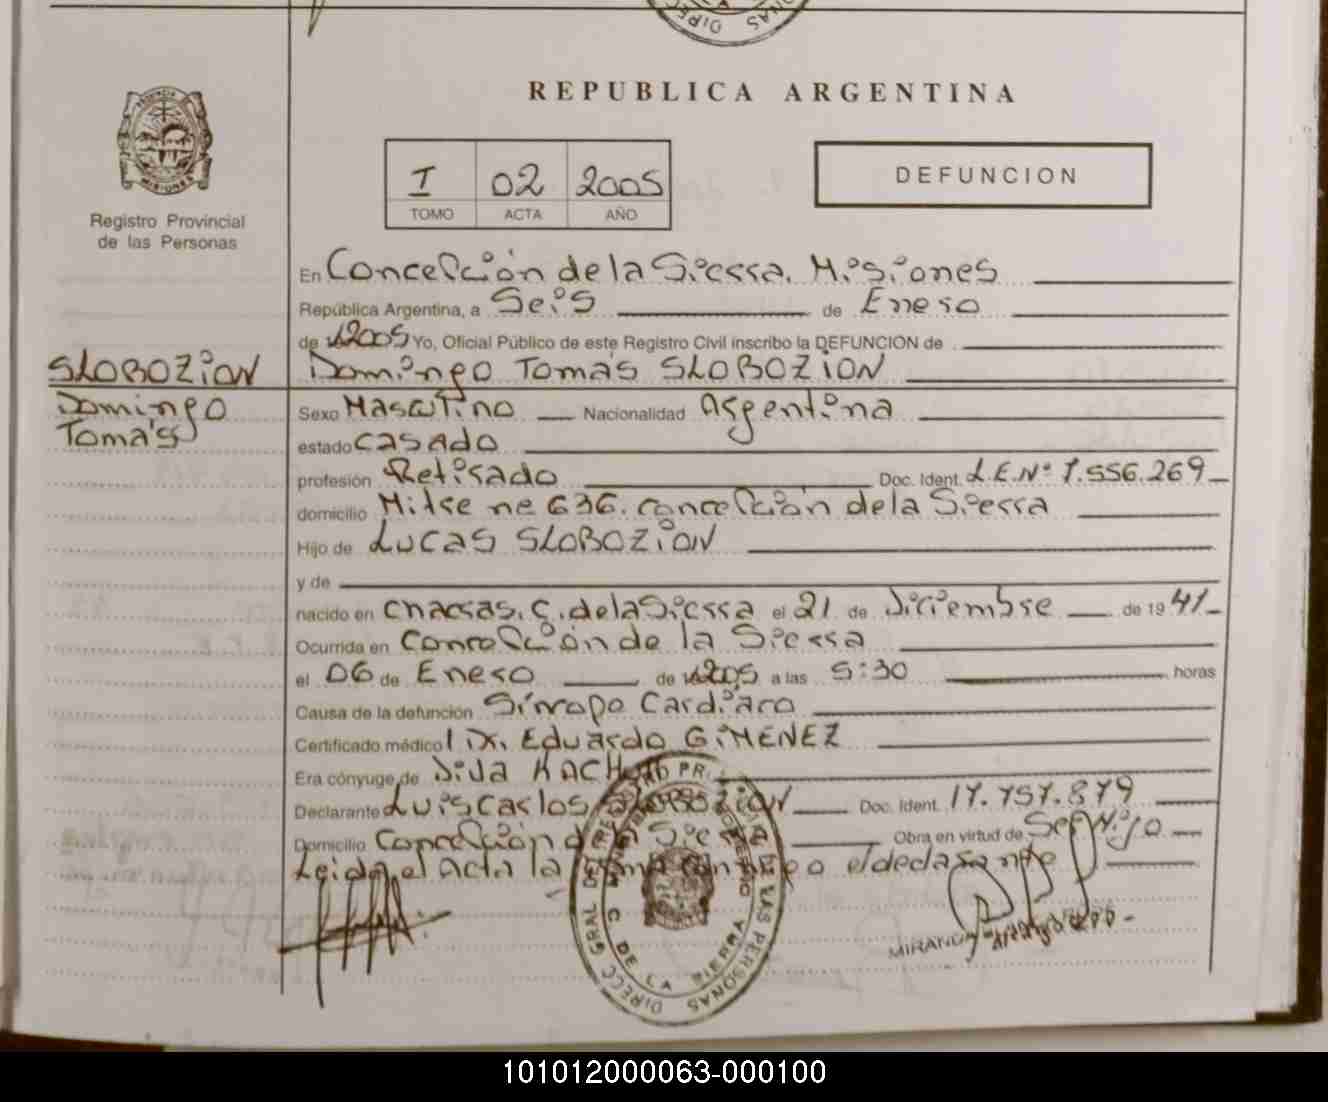 REPUBLICA ARGENTINA
PROVINCIA
MISIONES
Registro Provincial
de las Personas
I 02 2005
TOMO ACTA AÑO
DEFUNCION
En Concepción de la Sierra. Misiones
República Argentina, a Seis de Enero
de 2005 Yo, Oficial Público de este Registro Civil inscribo la DEFUNCION de
SLOBOZION
Domingo
Tomás
Domingo Tomás SLOBOZION
Sexo Masculino Nacionalidad Argentina
estado CASADO
profesión Retirado Doc. Ident. L.E.Nº 7.556.269
domicilio Mitre ne 636. concepción de la Sierra
Hijo de LUCAS SLOBOZION
y de
nacido en chacras. C. de la Sierra el 21 de Diciembre de 1941
Ocurrida en Concepción de la Sierra
el 06 de Enero de 2005 a las 5:30 horas
Causa de la defunción Síncope Cardíaco
Certificado médico Dr. Eduardo GIMENEZ
Era cónyuge de
Declarante Luis Carlos SLOBOZION Doc. Ident. 17.757.879
Domicilio Concepción de la Sierra Obra en virtud de Ser Hijo
Leida el Acta la firma conmigo el declarante
C. DE LA SIERRA
101012000063-000100